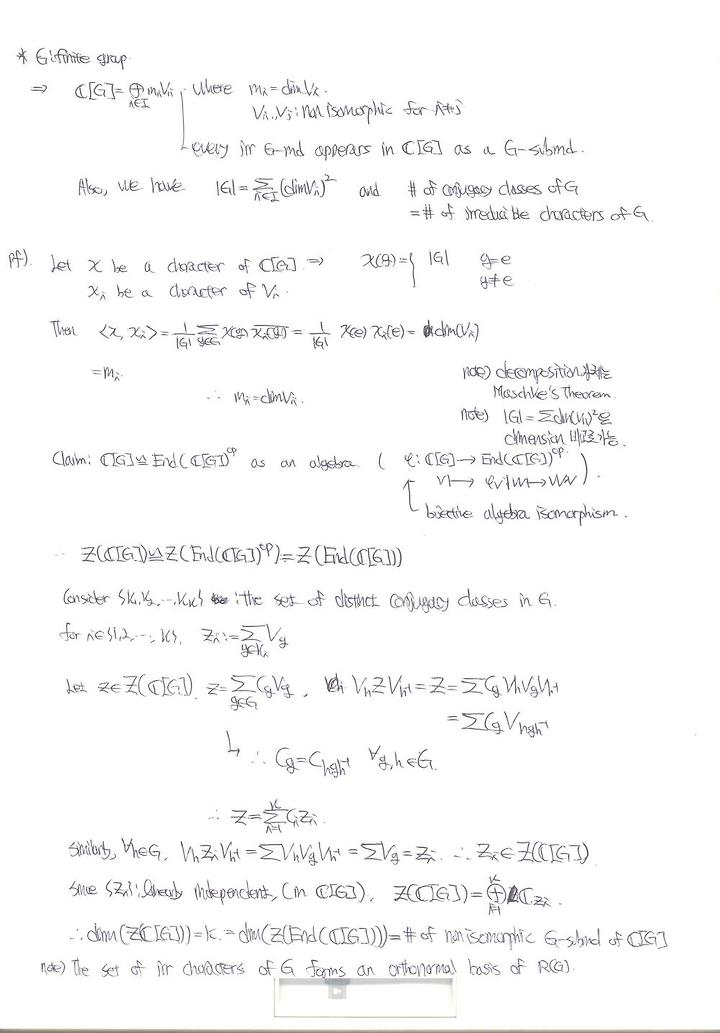 * G: finite group.
⇒ ℂ[G] = ⊕_{i∈I} m_i V_i, where m_i = dim V_i.
V_i, V_j : non isomorphic for i≠j
every irr G-md appears in ℂ[G] as a G-submd.
Also, we have |G| = Σ_{i∈I} (dim V_i)² and # of conjugacy classes of G
= # of irreducible characters of G.
pf). Let χ be a character of ℂ[G]. ⇒ χ(g) = { |G| g=e
χ_i be a character of V_i. g≠e
Then <χ, χ_i> = 1/|G| Σ_{g∈G} χ(g) \overline{χ_i(g)} = 1/|G| χ(e) χ_i(e) = dim(V_i)
= m_i.
∴ m_i = dim V_i.
note) decomposition
Maschke's Theorem.
note) |G| = Σ dim(V_i)²은
dimension 비교가능.
Claim: ℂ[G] ≅ End(ℂ[G])^{op} as an algebra. ( φ: ℂ[G] → End(ℂ[G])^{op}
v ↦ φ_v: w → wv ).
bijective algebra isomorphism.
∴ Z(ℂ[G]) ≅ Z(End(ℂ[G])^{op}) = Z(End(ℂ[G]))
Consider {K_1, K_2, ..., K_k} : the set of distinct conjugacy classes in G.
for i∈{1,2,...,k}, Z_i := Σ_{g∈K_i} V_g
Let z∈Z(ℂ[G]), z = Σ_{g∈G} C_g V_g, V_h z V_{h⁻¹} = z = Σ C_g V_h V_g V_{h⁻¹}
= Σ C_g V_{hgh⁻¹}
∴ C_g = C_{hgh⁻¹} ∀g,h∈G.
∴ z = Σ_{i=1}^{k} C_i Z_i.
Similarly, ∀h∈G, V_h Z_i V_{h⁻¹} = Σ V_h V_g V_{h⁻¹} = Σ V_g = Z_i. ∴ Z_i ∈ Z(ℂ[G])
Since {Z_i}: linearly independent, (in ℂ[G]), Z(ℂ[G]) = ⊕_{i=1}^{k} ℂ Z_i.
∴ dim(Z(ℂ[G])) = k. = dim(Z(End(ℂ[G]))) = # of non isomorphic G-sbmd of ℂ[G]
note) The set of irr characters of G forms an orthonormal basis of R(G).